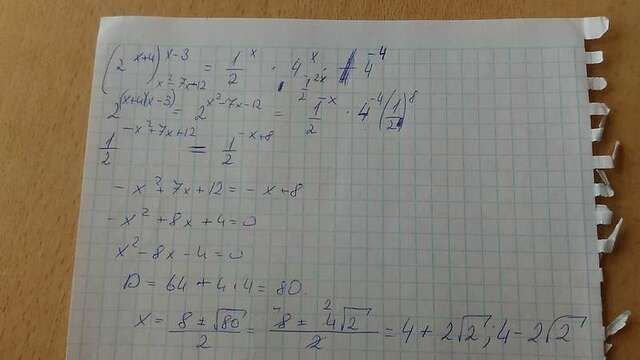 (2^{x+4})^{x-3} = \frac{1}{2}^x · 4^x · 4^{-4}
x^2-7x+12 \frac{1}{2}^{-2x}
2^{(x+4)(x-3)} = 2^{x^2-7x-12} = \frac{1}{2}^{-x} · 4^{-4} (\frac{1}{2})^8
\frac{1}{2}^{-x^2+7x+12} = \frac{1}{2}^{-x+8}
-x^2+7x+12 = -x+8
-x^2+8x+4=0
x^2-8x-4=0
D = 64+4·4 = 80.
x = \frac{8±√80}{2} = \frac{8±4√2}{2} = 4+2√2; 4-2√2